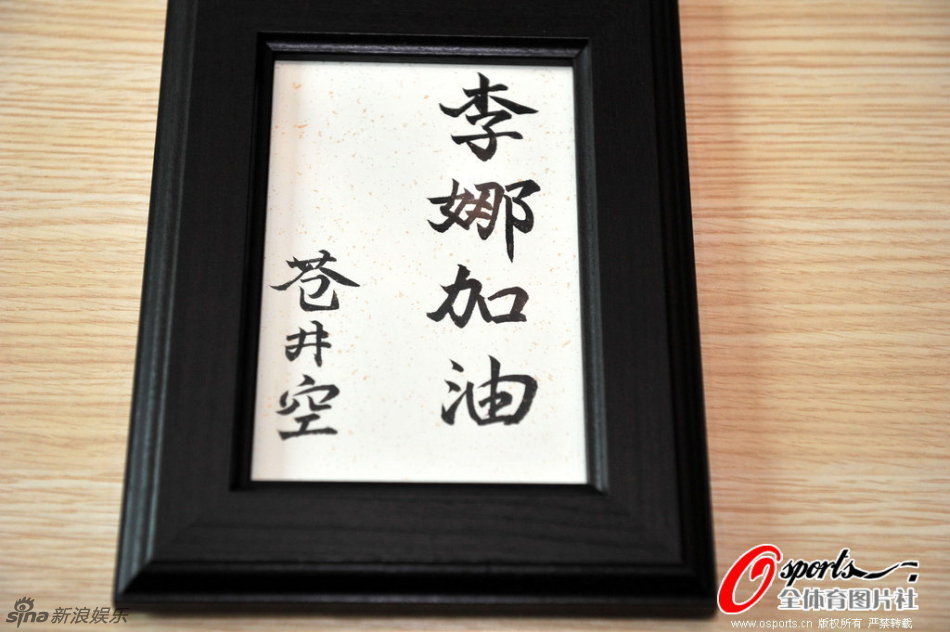 李娜加油
苍井空
sina新浪娱乐
Osports
全体育图片社
www.osports.cn 版权所有 严禁转载